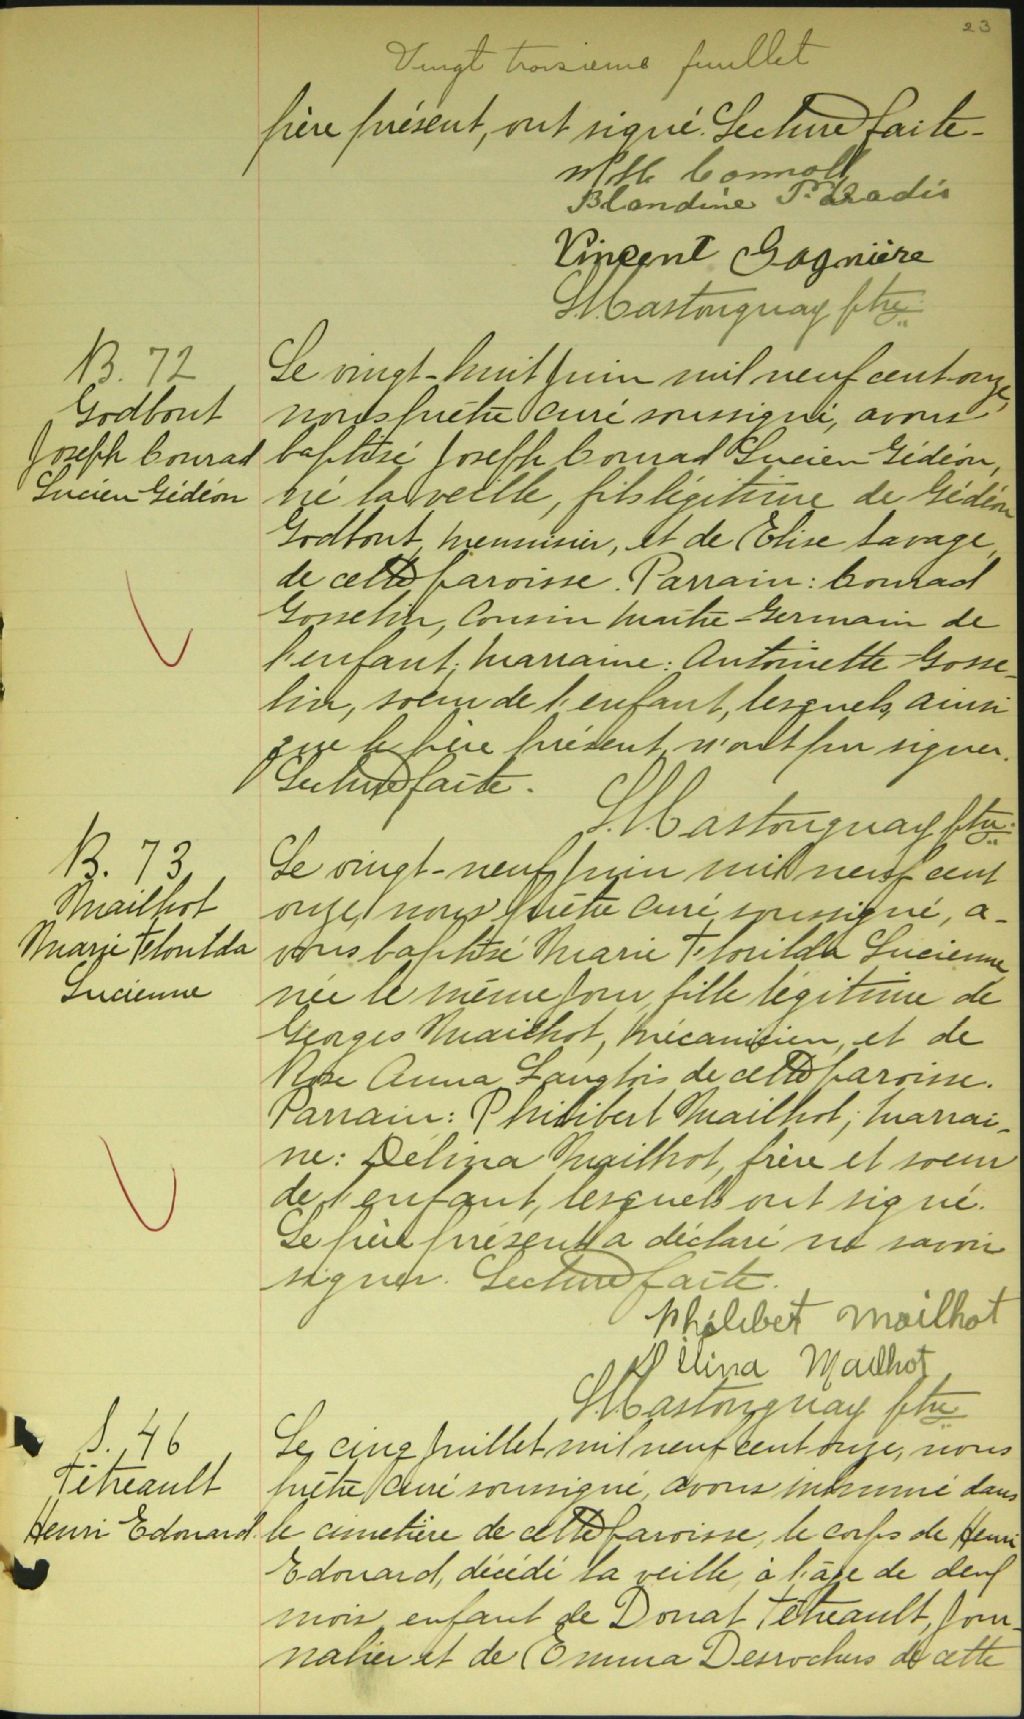 23
Vingt troisième feuillet
père présent, ont signé. Lecture faite.
Blandine P. Gradis
Vincent Gagnière
Mastonguay ptre
B. 72
Godbout
Joseph Conrad
Lucien Gédéon
Le vingt-huit juin mil neuf cent onze,
nous prêtre curé soussigné, avons
baptisé Joseph Conrad Lucien Gédéon,
né la veille, fils légitime de Gédéon
Godbout, menuisier, et de Elise Savage,
de cette paroisse. Parrain: Conrad
Gosselin, cousin maître-Germain de
l'enfant; marraine: Antoinette Gosse-
lin, soeur de l'enfant, lesquels, ainsi
que le père présent, n'ont pu signer.
Lecture faite.
Mastonguay ptre
B. 73
Mailhot
Marie Florilda
Lucienne
Le vingt-neuf juin mil neuf cent
onze, nous prêtre curé soussigné, a-
vons baptisé Marie Florilda Lucienne,
née le même jour, fille légitime de
Georges Mailhot, mécanicien, et de
Rose Anna Langlois de cette paroisse.
Parrain: Philibert Mailhot; marrai-
ne: Délina Mailhot, frère et soeur
de l'enfant, lesquels ont signé.
Le père présent a déclaré ne savoir
signer. Lecture faite.
Philibet Mailhot
Délina Mailhot
Mastonguay ptre
S. 46
Tétreault
Henri Edouard
Le cinq juillet mil neuf cent onze, nous
prêtre curé soussigné, avons inhumé dans
le cimetière de cette paroisse, le corps de Henri
Edouard, décédé la veille, à l'âge de deux
mois, enfant de Donat Tétreault, jour-
nalier et de Emma Desrochers de cette